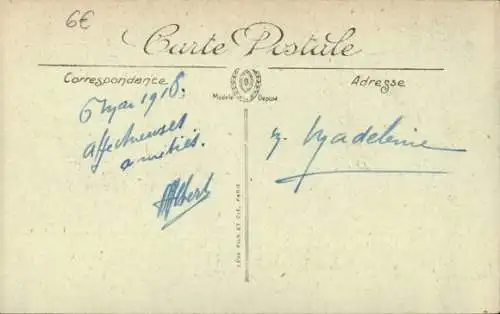 6€
Carte Postale
Correspondance
Adresse
Modèle Déposé
6 Mai 1918.
Affectueuses
amitiés.
Albert
Madeleine
LÉVY FILS ET CIE, PARIS